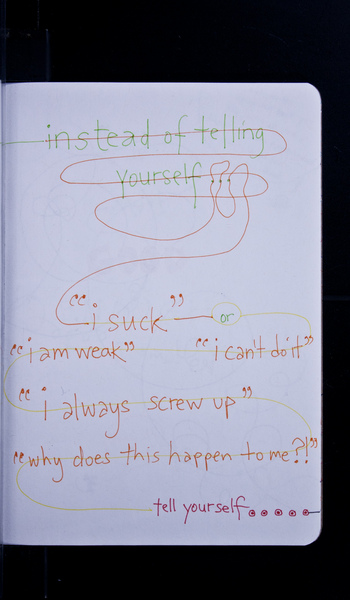 instead of telling
yourself...
"i suck" or
"i am weak" "i can't do it"
"i always screw up"
"why does this happen to me?!"
tell yourself.....